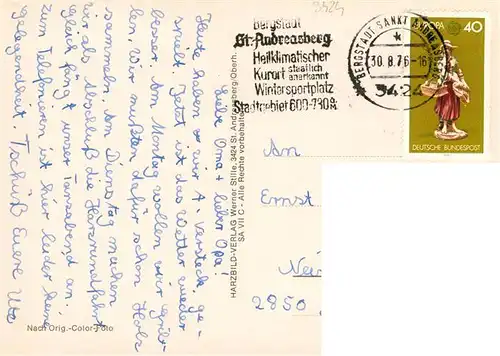 Liebe Oma + lieber Opa!
Heute haben wir 4. Versteck ge-
spielt. Jetzt ist das Wetter wieder
besser. Am Montag wollen wir gril-
len. Wir mußten dafür schon Holz
sammeln. Am Dienstag machen
wir als Abschluß die Harzrundfahrt
gleich fängt unser Tanzabend an.
Zum Telefonieren ist hier leider keine
Gelegenheit. Tschüß Eure Ute
Nach Orig.-Color-Foto
HARZBILD-VERLAG Werner Stille, 3424 St. Andreasberg/Oberh.
SA VII C - Alle Rechte vorbehalten
3424
Bergstadt
St. Andreasberg
Heilklimatischer
Kurort staatlich
anerkannt
Wintersportplatz
Stadtgebiet 600-
BERGSTADT SANKT ANDREASBERG
30.8.76-16
3424
EUROPA
40
DEUTSCHE BUNDESPOST
An
Ernst
2850